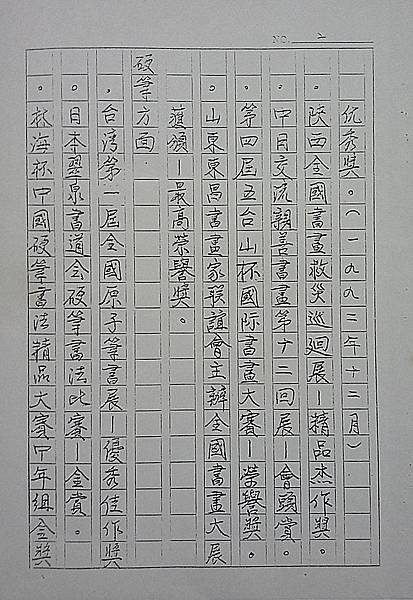 NO. 2
优秀獎。(一九九二年十二月)
。陝西全國書畫救災巡迴展—精品杰作獎。
。中日交流親善書畫第十二回展—會頭賞。
。第四屆五台山杯國际書畫大賽—榮譽獎。
。山東東昌書畫家联誼會主辦全國書畫大展
獲頒—最高榮譽獎。
硬筆方面.
。台湾第一屆全國原子筆書展—優秀佳作獎
。日本翠泉書道会硬筆書法比賽—金賞。
。林海杯中國硬筆書法精品大賽中年組金獎